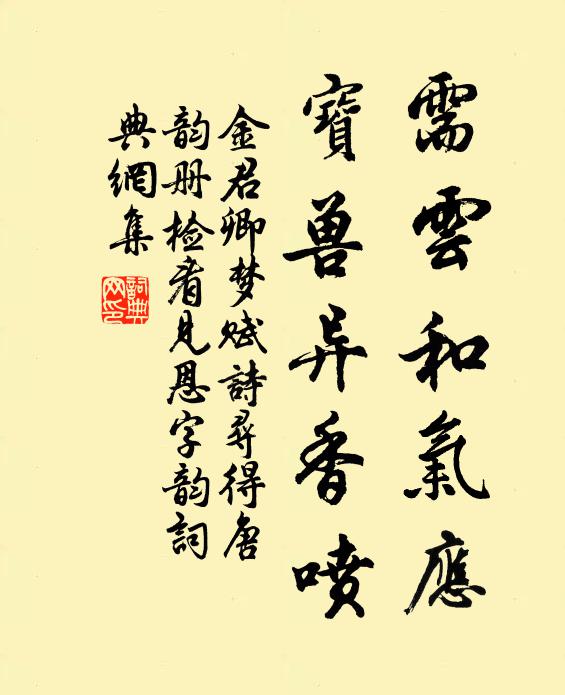 需雲和氣應
寶兽异香噴
金君卿梦赋詩尋得唐
韵册检看見恩字韵詞
典網集
詞典網印